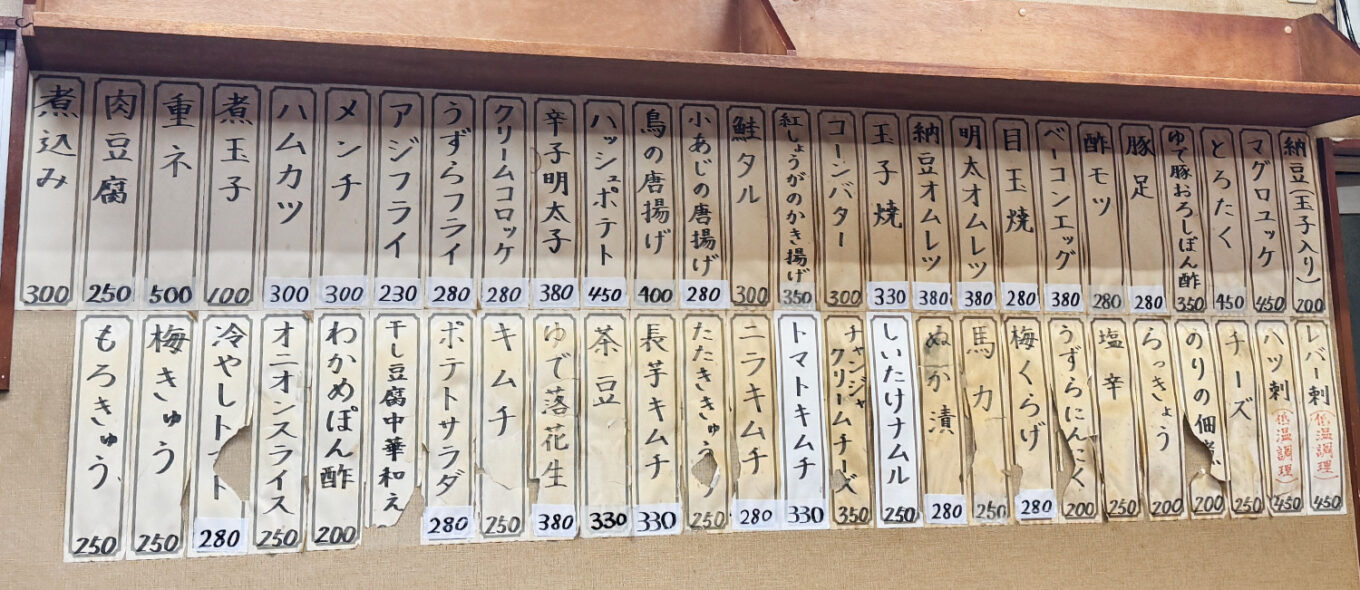 納豆(玉子入り)
200
マグロユッケ
450
とろたく
450
ゆで豚おろしぽん酢
350
豚足
280
酢モツ
280
ベーコンエッグ
380
目玉焼
280
明太オムレツ
380
納豆オムレツ
380
玉子焼
330
コーンバター
300
紅しょうがのかき揚げ
350
鮭タル
300
小あじの唐揚げ
280
鳥の唐揚げ
400
ハッシュポテト
450
辛子明太子
380
クリームコロッケ
280
うずらフライ
280
アジフライ
230
メンチ
300
ハムカツ
300
煮玉子
100
重ネ
500
肉豆腐
250
煮込み
300
レバー刺
(低温調理)
450
ハツ刺
(低温調理)
450
チーズ
250
のりの佃
200
らっきょう
200
塩辛
250
うずらにんにく
200
梅くらげ
280
馬力
250
ぬか漬
280
しいたけナムル
250
チャンジャ
クリームチーズ
350
トマトキムチ
330
ニラキムチ
280
たたききゅう
250
長芋キムチ
330
茶豆
330
ゆで落花生
380
キムチ
250
ポテトサラダ
280
干し豆腐中華和え
わかめぽん酢
200
オニオンスライス
250
冷やしト
ト
280
梅きゅう
250
もろきゅう
250